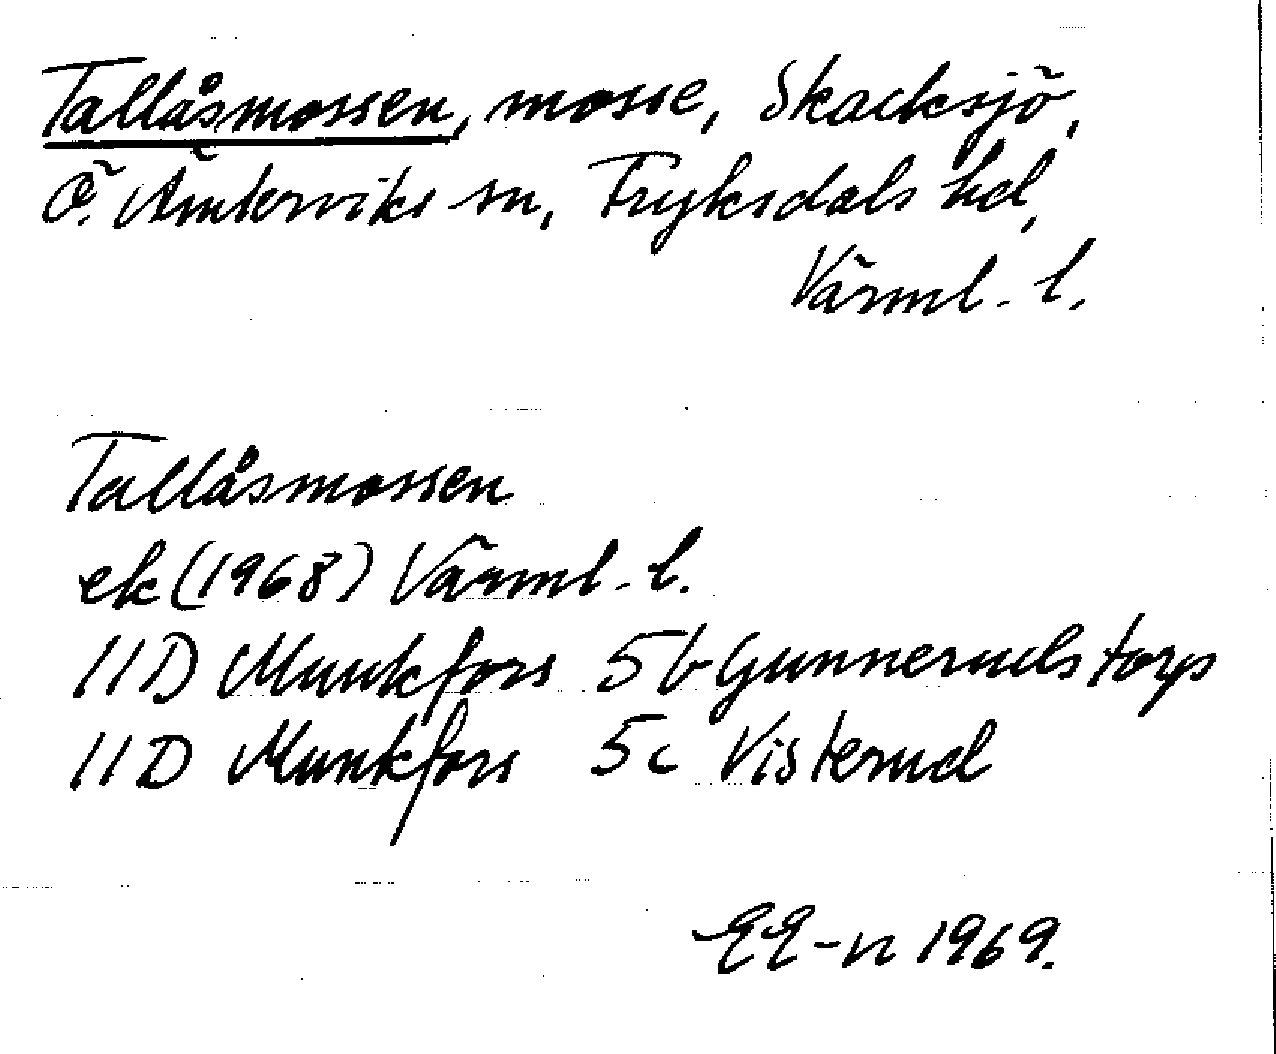 Tallåsmossen, mosse, Skacksjö,
Ö. Ämterviks sn, Fryksdals hd,
Värml. l.
Tallåsmossen
ek (1968) Värml. l.
11D Munkfors 5b Gunnerudstorp
11D Munkfors 5c Visterud
EE-n 1969.